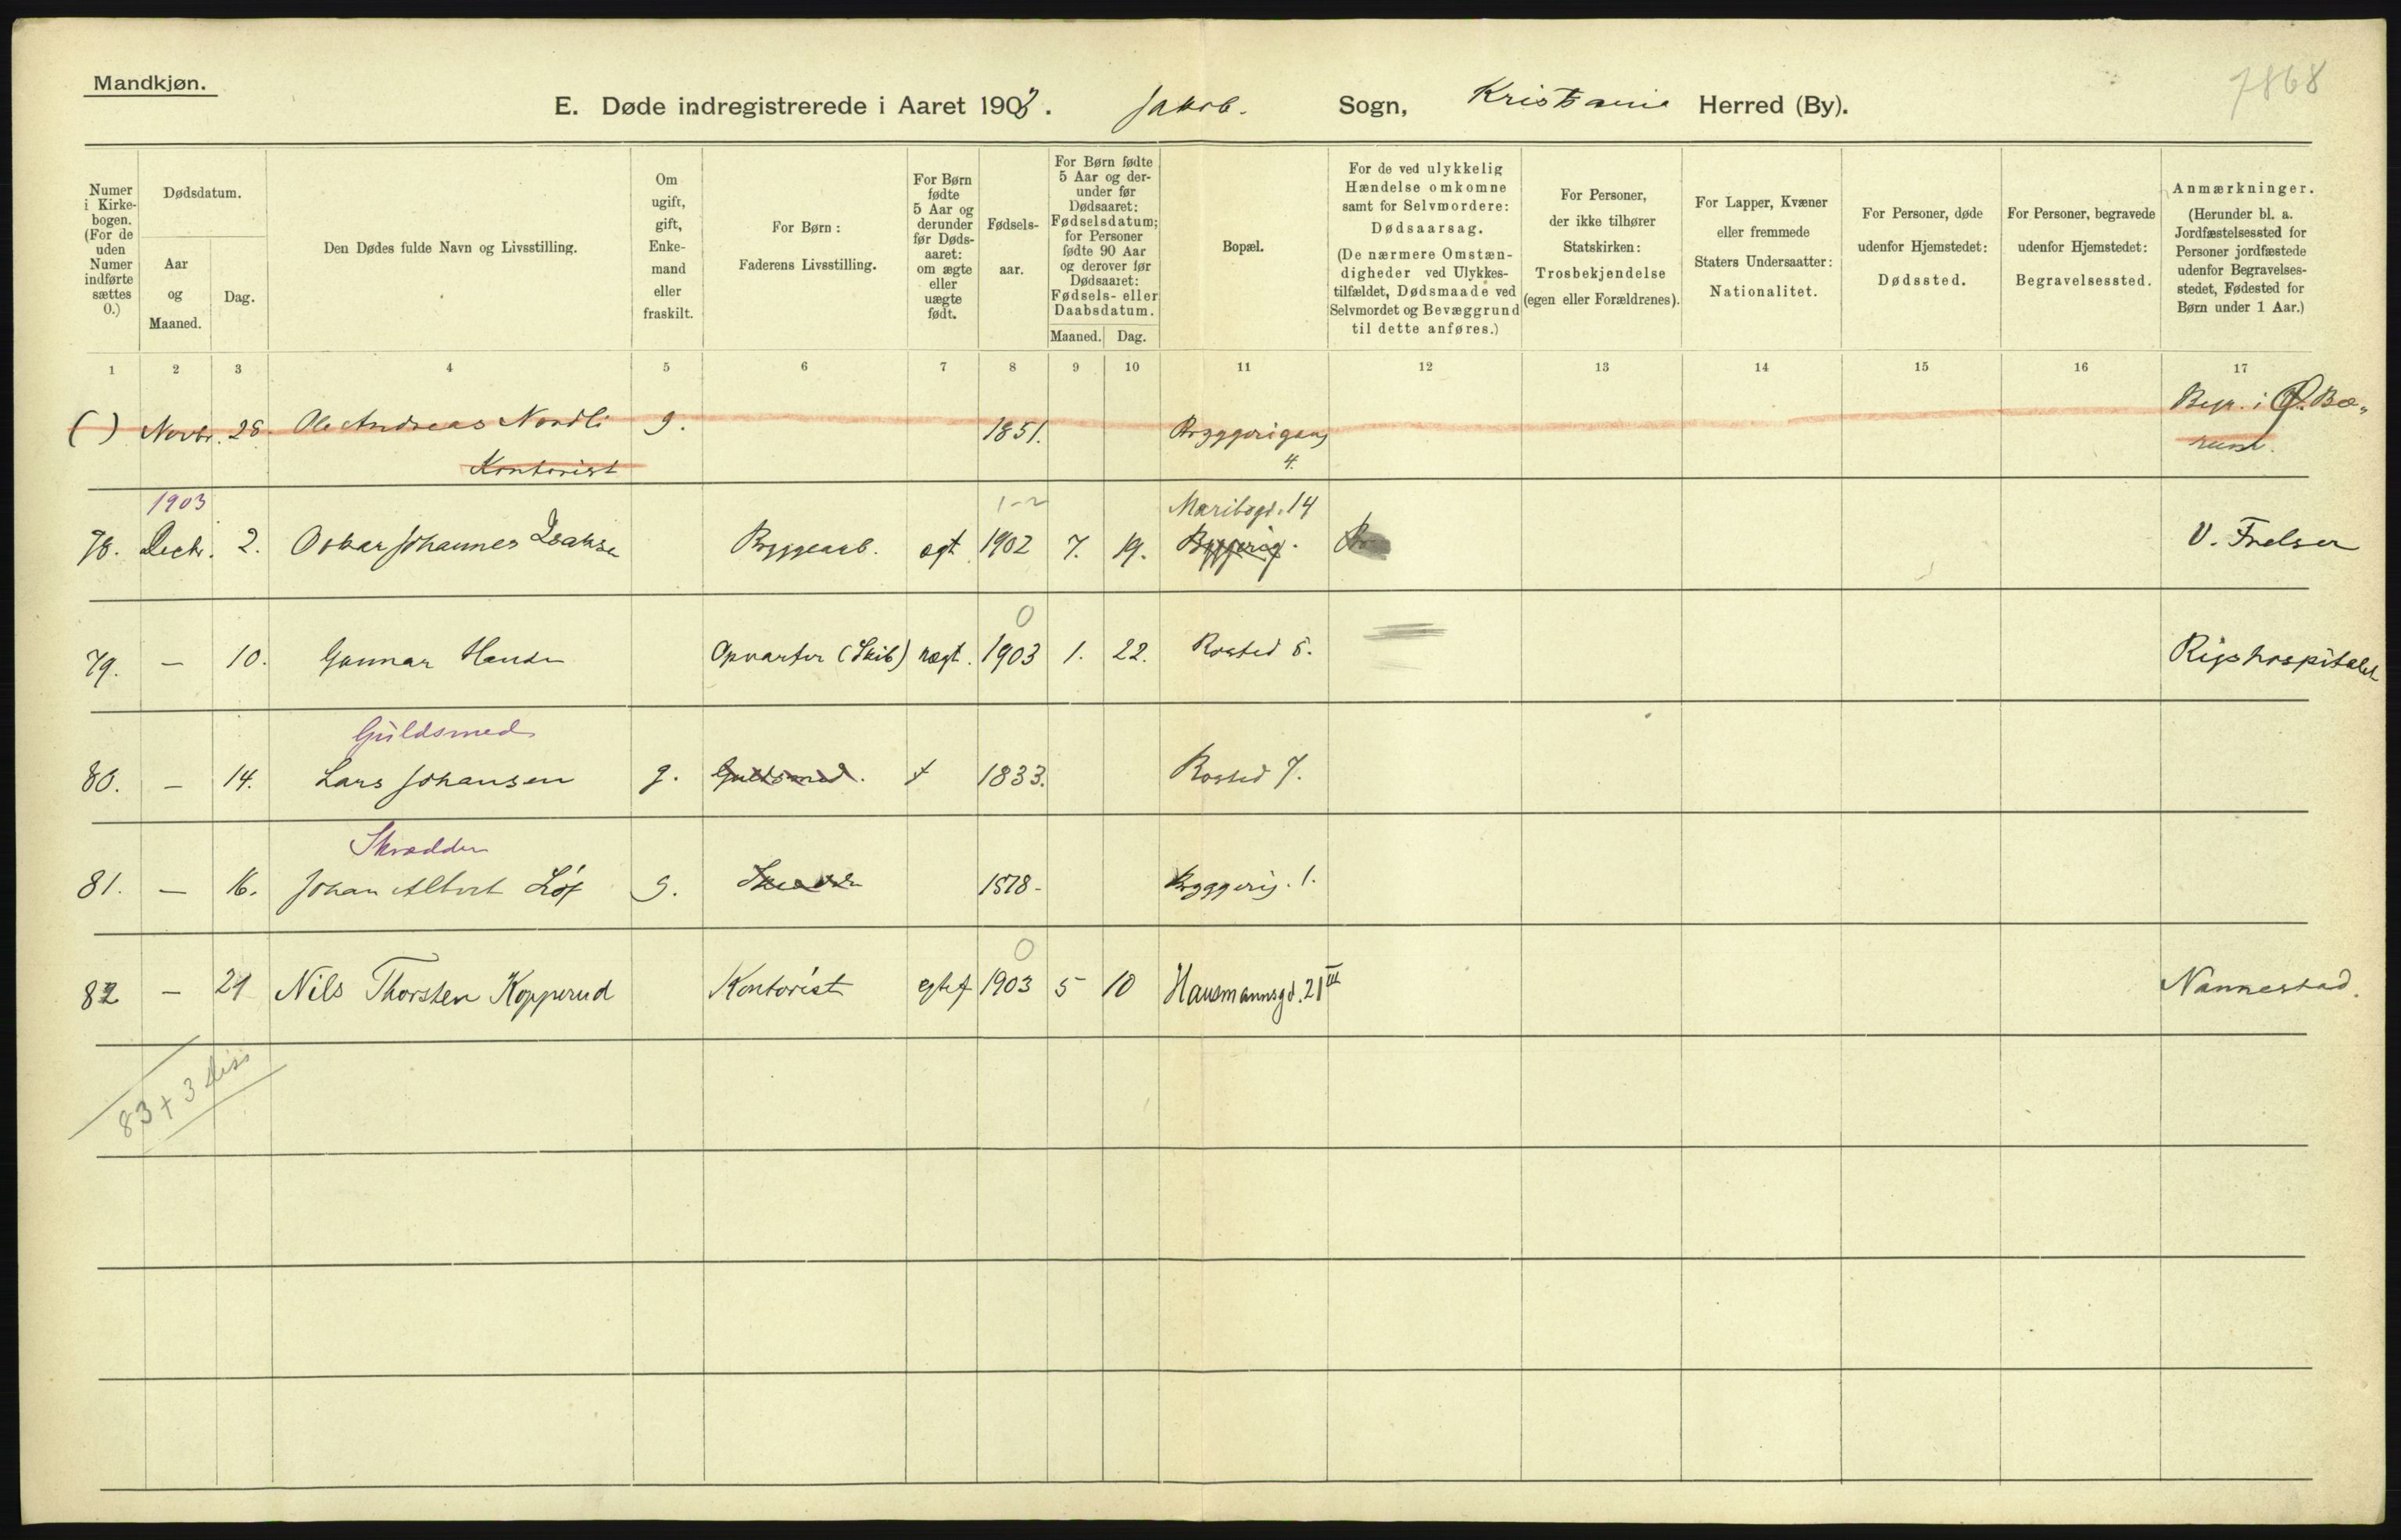 Mandkjøn.
7868
E. Døde indregistrerede i Aaret 1903. Jakob. Sogn, Kristiania Herred (By).
Numer i Kirkebogen. (For de uden Numer indførte sættes 0.)
Dødsdatum.
Aar og Maaned.
Dag.
Den Dødes fulde Navn og Livsstilling.
Om ugift, gift, Enkemand eller fraskilt.
For Børn: Faderens Livsstilling.
For Børn fødte 5 Aar og derunder før Dødsaaret: om ægte eller uægte født.
Fødselsaar.
For Børn fødte 5 Aar og derunder før Dødsaaret: Fødselsdatum; for Personer fødte 90 Aar og derover før Dødsaaret: Fødsels- eller Daabsdatum.
Maaned. Dag.
Bopæl.
For de ved ulykkelig Hændelse omkomne samt for Selvmordere: Dødsaarsag. (De nærmere Omstændigheder ved Ulykkestilfældet, Dødsmaade ved Selvmordet og Bevæggrund til dette anføres.)
For Personer, der ikke tilhører Statskirken: Trosbekjendelse (egen eller Forældrenes).
For Lapper, Kvæner eller fremmede Staters Undersaatter: Nationalitet.
For Personer, døde udenfor Hjemstedet: Dødssted.
For Personer, begravede udenfor Hjemstedet: Begravelsessted.
Anmærkninger. (Herunder bl. a. Jordfæstelsessted for Personer jordfæstede udenfor Begravelsesstedet, Fødested for Børn under 1 Aar.)
1 2 3 4 5 6 7 8 9 10 11 12 13 14 15 16 17
( ) Novbr. 28. Ole Andreas Nordli g. 1851. Bryggerigang Begr. i Ø. Bæ-
Kontorist 4. rum.
1903 1-2 Maribogd. 14
78. Decbr. 2. Oskar Johannes Isaksen Byggearb. ægt. 1902 7. 19. Bryggerig. V. Frelser
0
79. — 10. Gunnar Hansen Opvarter (Skib) uægt. 1903 1. 22. Rosted 5. Rigshospitalet
Guldsmed
80. — 14. Lars Johansen g. Guldsmed. 1833. Rosted 7.
Skrædder
81. — 16. Johan Albert Löf g. Skrædder 1878- Bryggerig. 1.
0
82 — 21 Nils Thorsten Kopperud Kontorist egtef 1903 5 10 Hausmannsgd. 21 III Nannestad.
83 + 3